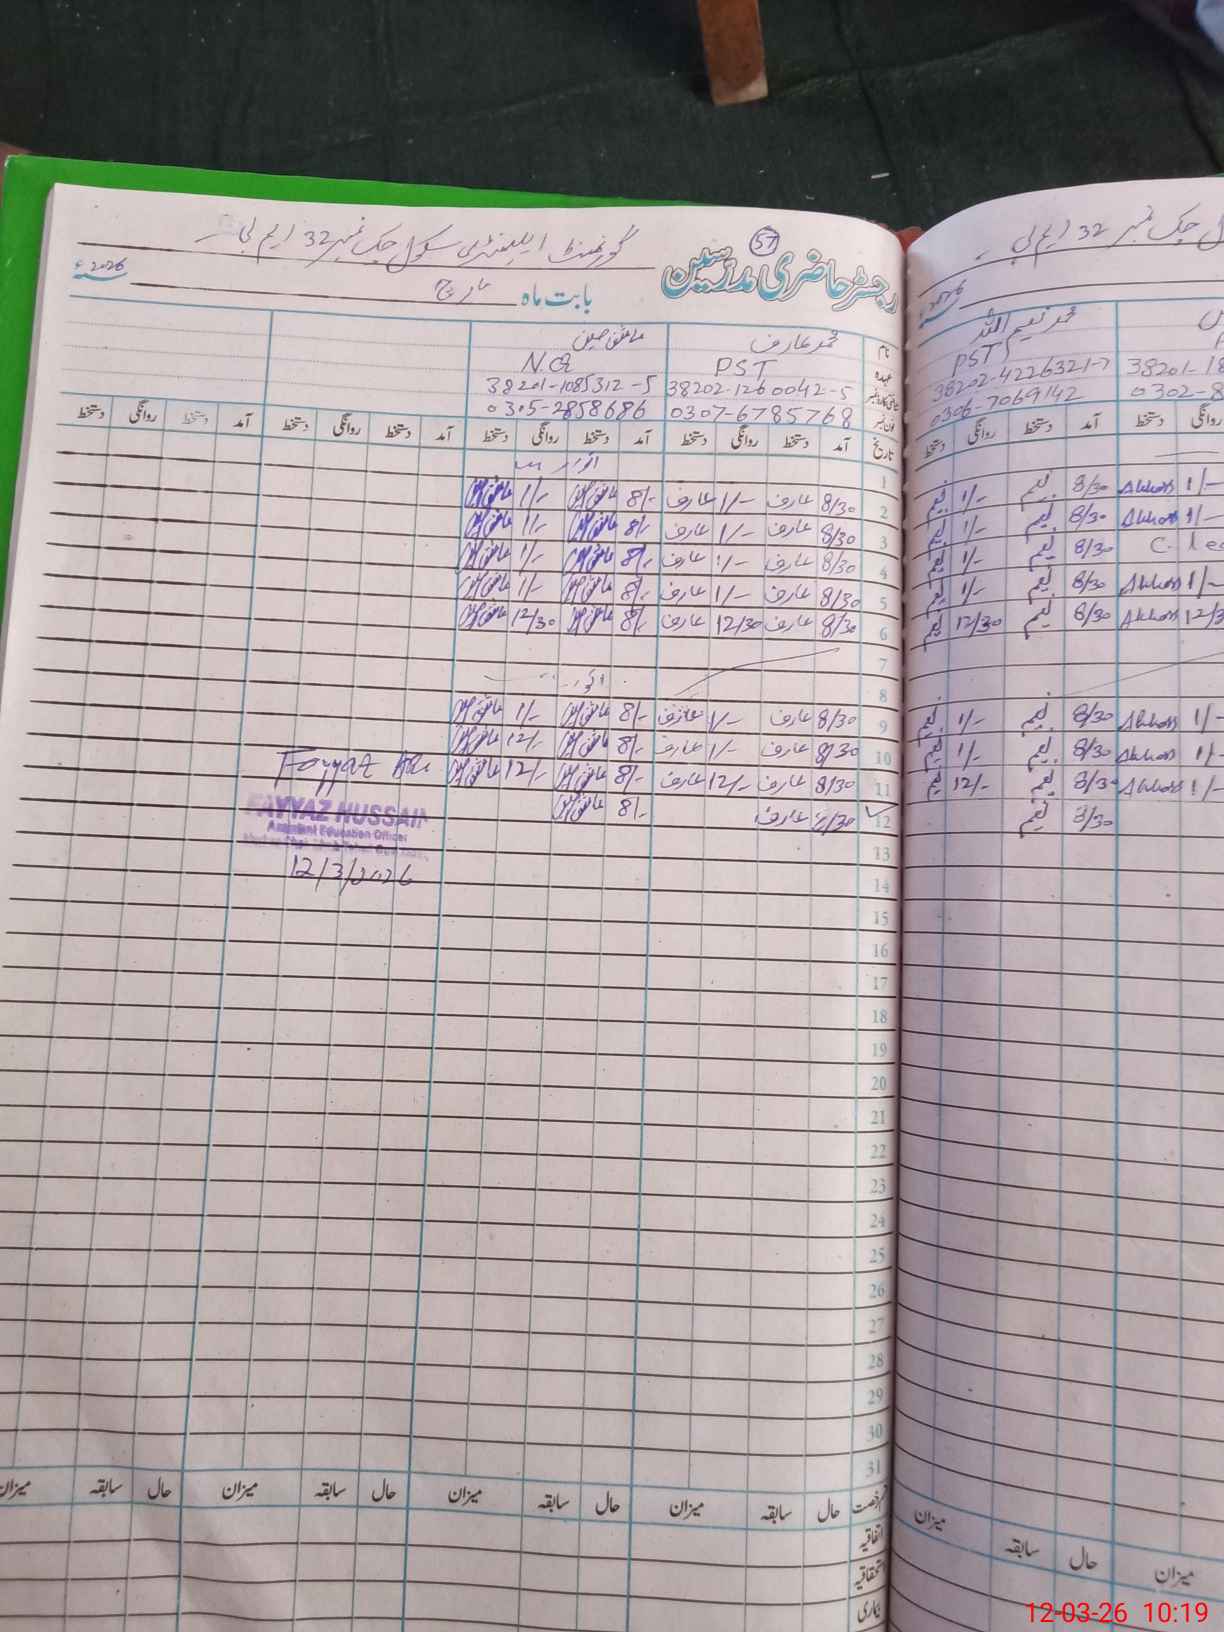 57
رجسٹر حاضری مدرسین
گورنمنٹ ایلیمنٹری سکول چک نمبر 32 ایم بی
بابت ماہ مارچ 2026ء
نام محمد عارف عاشق حسین
عہدہ PST N.Q
38202-1260042-5 38201-1085312-5
فون نمبر 0307-6785768 0305-2858686
تاریخ آمد دستخط روانگی دستخط آمد دستخط روانگی دستخط آمد دستخط روانگی دستخط آمد دستخط روانگی دستخط
1 اتوار
2 8/30 عارف 1/- عارف 8/- 1/-
3 8/30 عارف 1/- عارف 8/- 1/-
4 8/30 عارف 1/- عارف 8/- 1/-
5 8/30 عارف 1/- عارف 8/- 1/-
6 8/30 عارف 12/30 عارف 8/- 12/30
7
8 اتوار
9 8/30 عارف 1/- عارف 8/- 1/-
10 8/30 عارف 1/- عارف 8/- 12/-
11 8/30 عارف 12/- عارف 8/- 12/-
12 8/30 عارف 8/-
13
14
15
16
17
18
19
20
21
22
23
24
25
26
27
28
29
30
31
FAYYAZ HUSSAIN
Assistant Education Officer
12/3/2026
رخصت حال سابقہ میزان حال سابقہ میزان حال سابقہ میزان حال سابقہ میزان
اتفاقیہ
استحقاقیہ
بیماری
چک نمبر 32 ایم بی
2026ء
محمد نعیم اللہ
PST
38202-4226321-7 38201-18
0306-7069142 0302-8
آمد دستخط روانگی دستخط
8/30 نعیم 1/- نعیم Abbas 1/-
8/30 نعیم 1/- نعیم Abbas 1/-
8/30 نعیم 1/- نعیم C. lea
8/30 نعیم 1/- نعیم Abbas 1/-
8/30 نعیم 12/30 نعیم Abbas 12/3
8/30 نعیم 1/- نعیم Abbas 1/-
8/30 نعیم 1/- نعیم Abbas 1/-
8/30 نعیم 12/- نعیم Abbas 1/-
8/30 نعیم
میزان سابقہ حال میزان
12-03-26 10:19